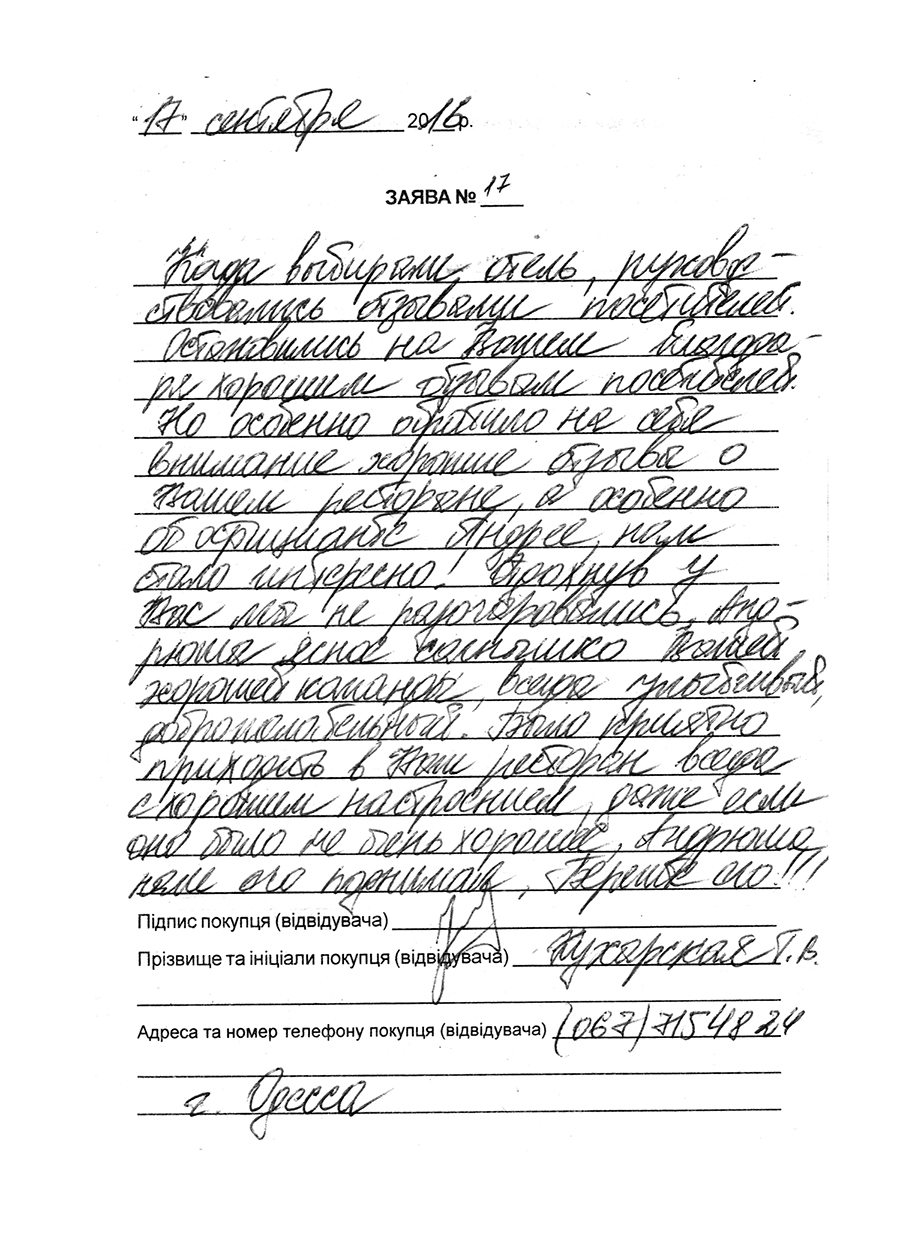 "17" сентября 2016р.
ЗАЯВА № 17
Когда выбирали отель, руковод-
ствовались отзывами посетителей.
Остановились на Вашем благода-
ря хорошим отзывам посетителей.
Но особенно обратило на себя
внимание хорошие отзывы о
Вашем ресторане, а особенно
об официанте Андрее, нам
стало интересно! Отдохнув у
Вас мы не разочаровались. Анд-
рюша ясное солнышко Вашей
хорошей команды, всегда улыбчивый,
доброжелательный. Было приятно
приходить в Ваш ресторан всегда
с хорошим настроением, даже если
оно было не очень хорошее, Андрюша
нам его поднимал, Берегите его!!!
Підпис покупця (відвідувача)
Прізвище та ініціали покупця (відвідувача) Кухарская Т.В.
Адреса та номер телефону покупця (відвідувача) (067)7154824
г. Одесса